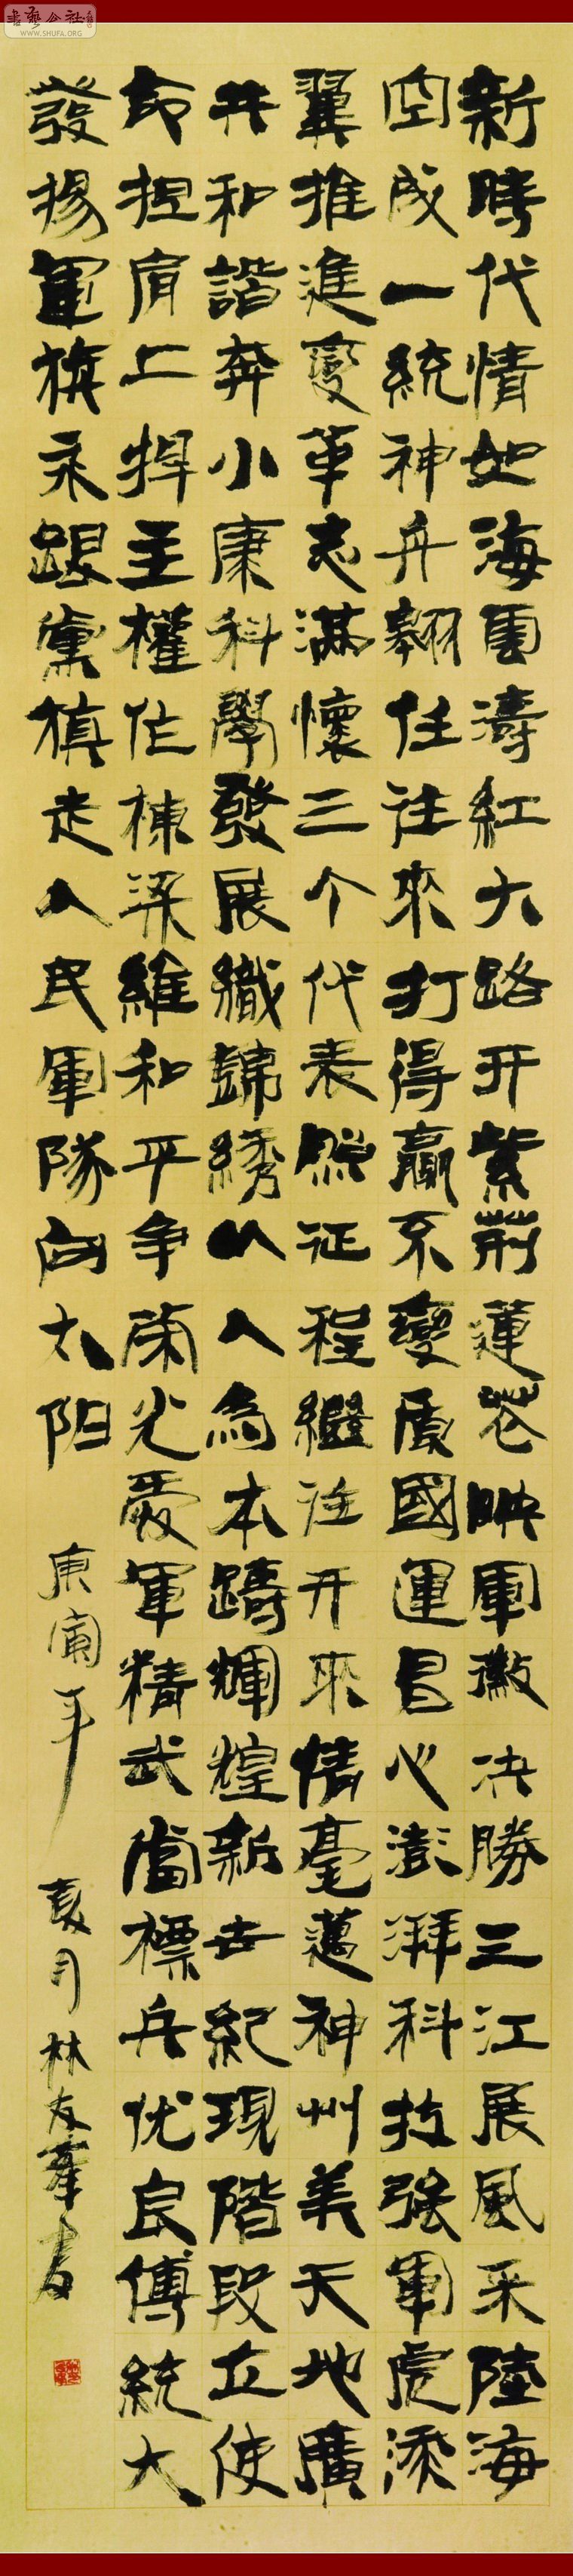 新時代情如海雲濤紅大路开紫荊蓮花映軍徽决勝三江展風采陸海
空成一統神舟翱任往來打得贏不變質國運昌心澎湃科技强軍虎添
翼推進變革志滿懷三个代表照征程繼往开來情豪邁神州美天地廣
共和諧奔小康科學發展織錦綉以人為本鑄輝煌新世紀現階段立使
命担肩上捍主權作棟梁維和平争荣光愛軍精武當標兵优良傳統大
發揚軍旗永跟黨旗走人民軍隊向太阳
庚寅年 夏月 林友峯書
書藝公社
WWW.SHUFA.ORG